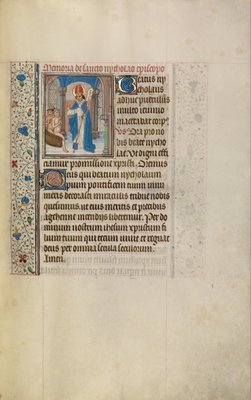 Memoria de sancto nycholao episcopo
Beatus ny
cholaus
adhuc puerulus
multo ieiunio
macerabat corpꝰ
vs Ora pro no
bis beate nycho
lae Vt digni effi
ciamur promissione xpristi Oremus
Deus qui beatum nycholaum
pium pontificem tuum innu
meris decorasti miraculis tribue nobis
quesumus ut eius meritis et precibus
a gehenne incendijs liberemur. Per do
minum nostrum ihesum xpristum fi
lium tuum qui tecum uiuit et regnat
deus per omnia secula seculorum
Amen.